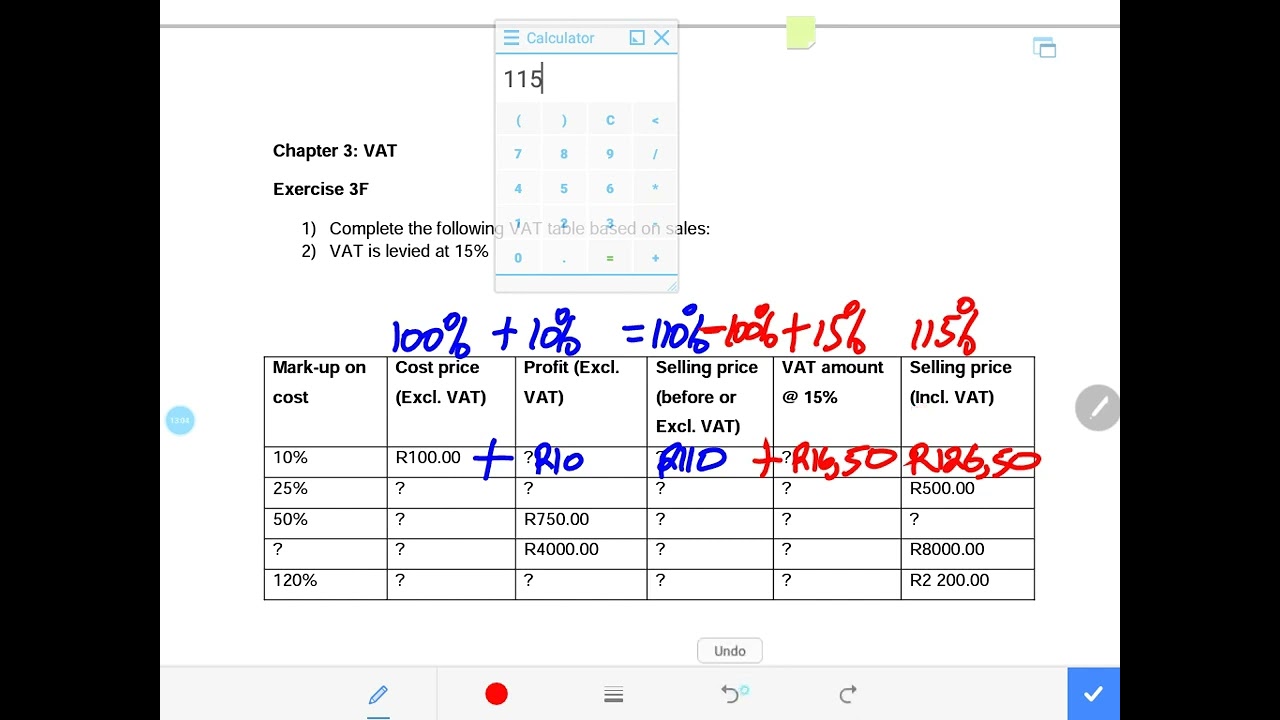 Calculator
115
( ) C <
7 8 9 /
4 5 6 *
1 2 3 -
0 . = +
Chapter 3: VAT
Exercise 3F
1) Complete the following VAT table based on sales:
2) VAT is levied at 15%
100% + 10% = 110% - 100% + 15% 115%
Mark-up on cost Cost price (Excl. VAT) Profit (Excl. VAT) Selling price (before or Excl. VAT) VAT amount @ 15% Selling price (Incl. VAT)
10% R100.00 + ? R10 R110 + ? R16,50 R126,50
25% ? ? ? ? R500.00
50% ? R750.00 ? ? ?
? ? R4000.00 ? ? R8000.00
120% ? ? ? ? R2 200.00
13:04
Undo